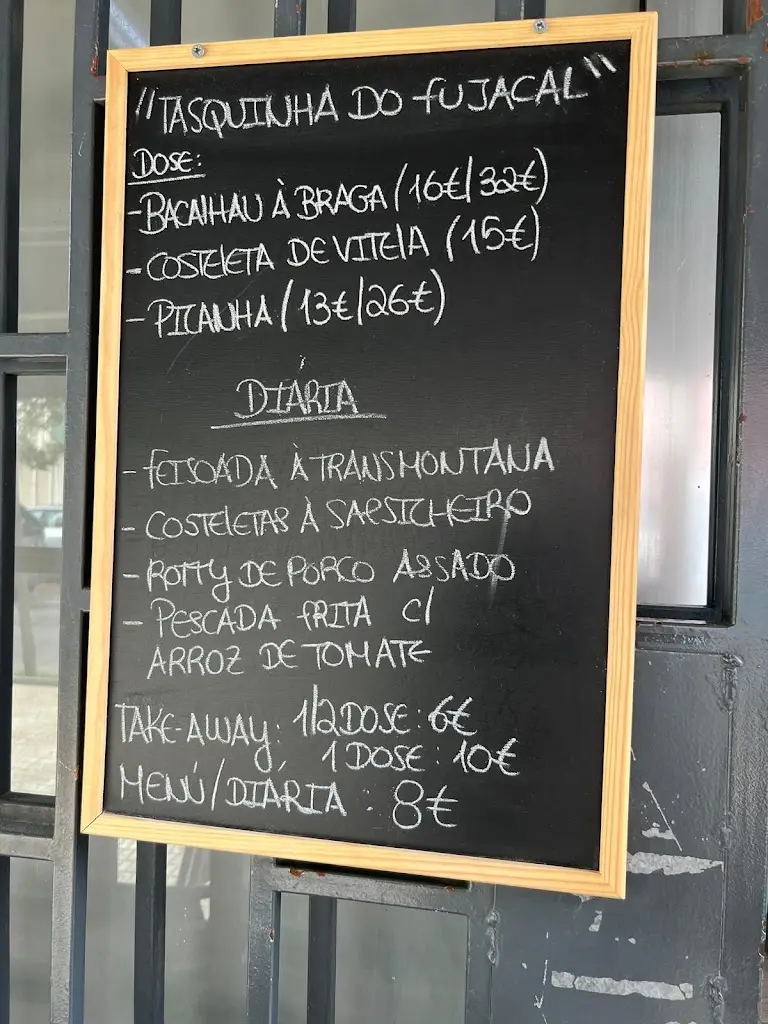 "TASQUINHA DO FUJACAL"
DOSE:
-BACALHAU À BRAGA (16€/32€)
- COSTELETA DE VITELA (15€)
- PICANHA (13€/26€)
DIÁRIA
- FEIJOADA À TRANSMONTANA
- COSTELETAS À SALSICHEIRO
- ROTTY DE PORCO ASSADO
- PESCADA FRITA C/
ARROZ DE TOMATE
TAKE-AWAY: 1/2 DOSE: 6€
1 DOSE: 10€
MENÚ/DIÁRIA: 8€